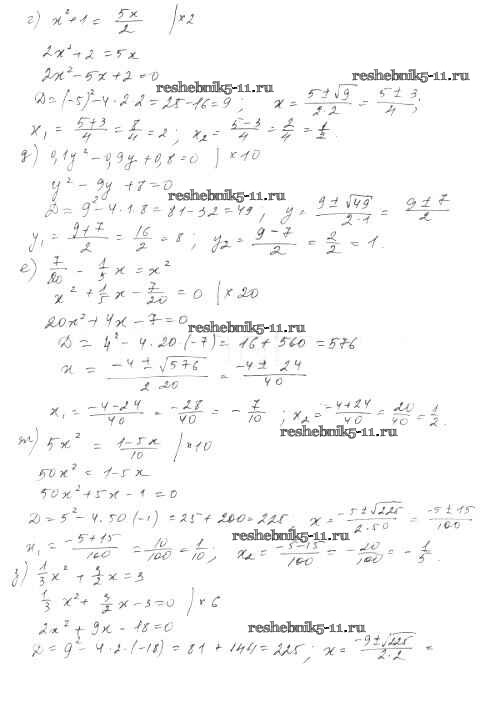 г) x² + 1 = 5x/2 | ×2
2x² + 2 = 5x
2x² - 5x + 2 = 0
reshebnik5-11.ru reshebnik5-11.ru
D = (-5)² - 4·2·2 = 25 - 16 = 9; x = (5 ± √9)/(2·2) = (5 ± 3)/4;
x₁ = (5+3)/4 = 8/4 = 2; x₂ = (5-3)/4 = 2/4 = 1/2.
д) 0,1y² - 0,9y + 0,8 = 0 | ×10
y² - 9y + 8 = 0
reshebnik5-11.ru
D = 9² - 4·1·8 = 81 - 32 = 49; y = (9 ± √49)/(2·1) = (9 ± 7)/2
y₁ = (9+7)/2 = 16/2 = 8; y₂ = (9-7)/2 = 2/2 = 1.
е) 7/20 - 1/5 x = x²
x² + 1/5 x - 7/20 = 0 | ×20
20x² + 4x - 7 = 0
reshebnik5-11.ru
D = 4² - 4·20·(-7) = 16 + 560 = 576
x = (-4 ± √576)/(2·20) = (-4 ± 24)/40
x₁ = (-4-24)/40 = -28/40 = -7/10; x₂ = (-4+24)/40 = 20/40 = 1/2.
reshebnik5-11.ru
ж) 5x² = (1-5x)/10 | ×10
50x² = 1 - 5x
50x² + 5x - 1 = 0
D = 5² - 4·50·(-1) = 25 + 200 = 225, x = (-5 ± √225)/(2·50) = (-5 ± 15)/100
reshebnik5-11.ru
x₁ = (-5+15)/100 = 10/100 = 1/10; x₂ = (-5-15)/100 = -20/100 = -1/5.
з) 1/3 x² + 3/2 x = 3
1/3 x² + 3/2 x - 3 = 0 | ×6
2x² + 9x - 18 = 0
reshebnik5-11.ru
D = 9² - 4·2·(-18) = 81 + 144 = 225; x = (-9 ± √225)/(2·2) =